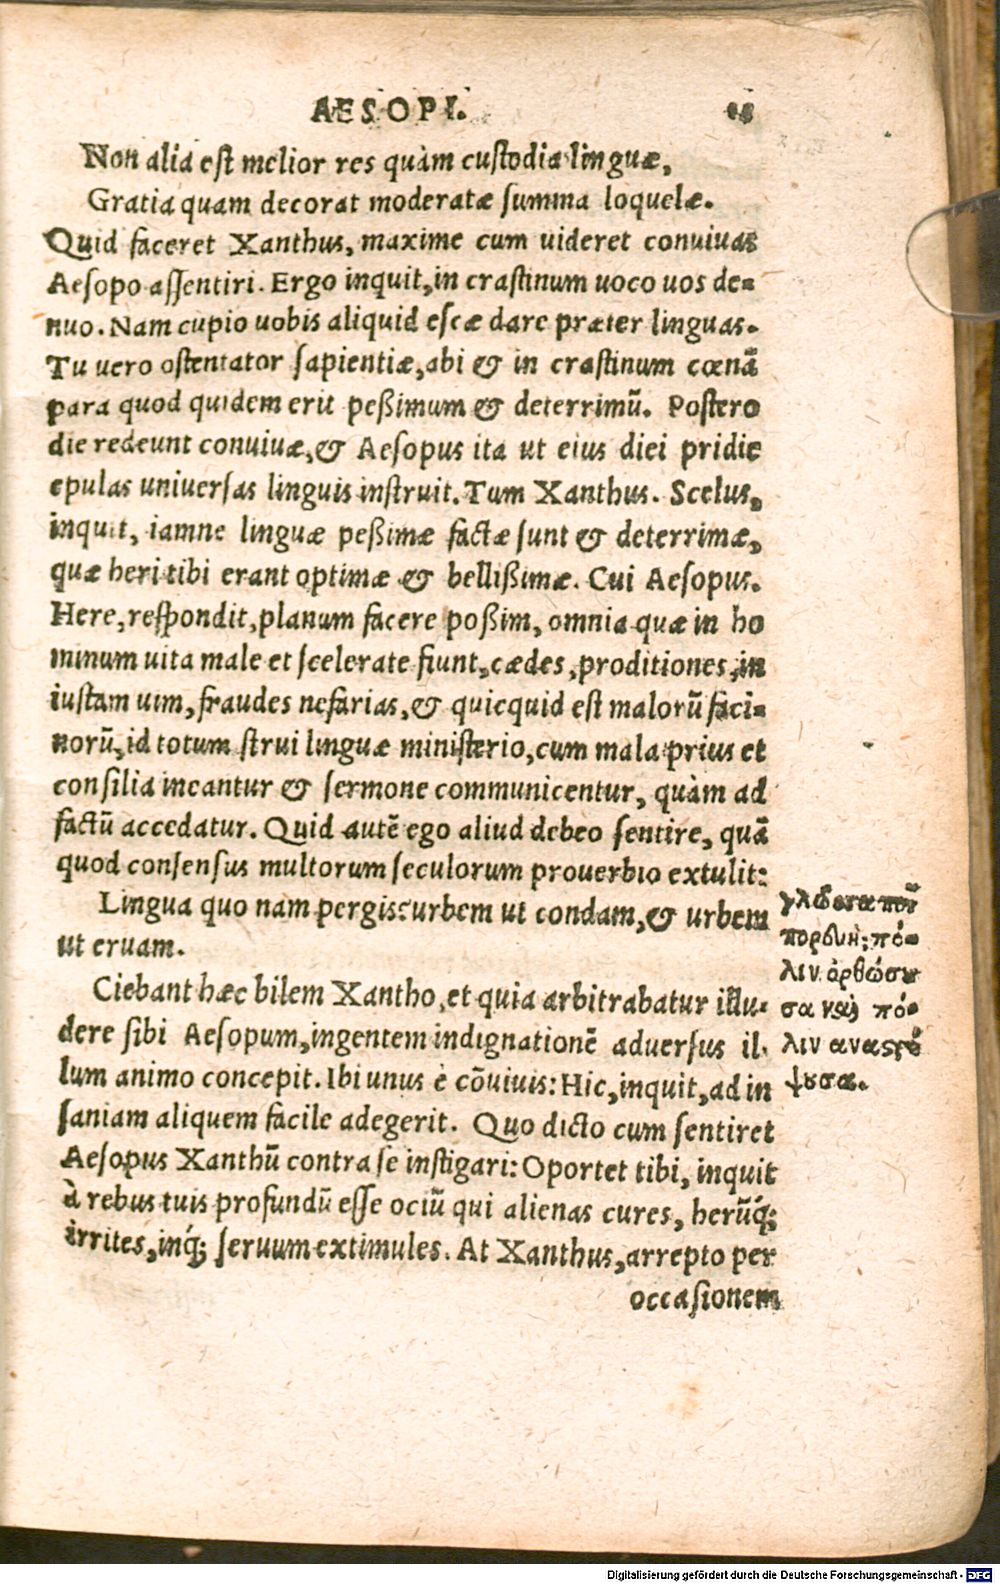 AESOPI.
Non alia est melior res quàm custodia linguæ,
Gratia quam decorat moderatæ summa loquelæ.
Quid faceret Xanthus, maxime cum uideret conuiuas
Aesopo assentiri. Ergo inquit, in crastinum uoco uos de-
nuo. Nam cupio uobis aliquid escæ dare præter linguas.
Tu uero ostentator sapientiæ, abi & in crastinum cœnã
para quod quidem erit peßimum & deterrimũ. Postero
die redeunt conuiuæ, & Aesopus ita ut eius diei pridie
epulas uniuersas linguis instruit. Tum Xanthus. Scelus,
inquit, iamne linguæ peßimæ factæ sunt & deterrimæ,
quæ heri tibi erant optimæ & bellißimæ. Cui Aesopus.
Here, respondit, planum facere poßim, omnia quæ in ho
minum uita male et scelerate fiunt, cædes, proditiones, in
iustam uim, fraudes nefarias, & quicquid est malorũ faci-
norũ, id totum strui linguæ ministerio, cum mala prius et
consilia ineantur & sermone communicentur, quàm ad
factũ accedatur. Quid autẽ ego aliud debeo sentire, quã
quod consensus multorum seculorum prouerbio extulit:
Lingua quo nam pergis: urbem ut condam, & urbem
ut eruam.
Ciebant hæc bilem Xantho, et quia arbitrabatur illu-
dere sibi Aesopum, ingentem indignationẽ aduersus il-
lum animo concepit. Ibi unus è cõuiuis: Hic, inquit, ad in
saniam aliquem facile adegerit. Quo dicto cum sentiret
Aesopus Xanthũ contra se instigari: Oportet tibi, inquit
à rebus tuis profundũ esse ociũ qui alienas cures, herũq́;
irrites, inq́; seruum extimules. At Xanthus, arrepto per
occasionem
γλῶσσα ποῖ
πορεύῃ; πό-
λιν ὀρθώσου
σα καὶ πό-
λιν αναστρέ
ψουσα.
Digitalisierung gefördert durch die Deutsche Forschungsgemeinschaft - DFG